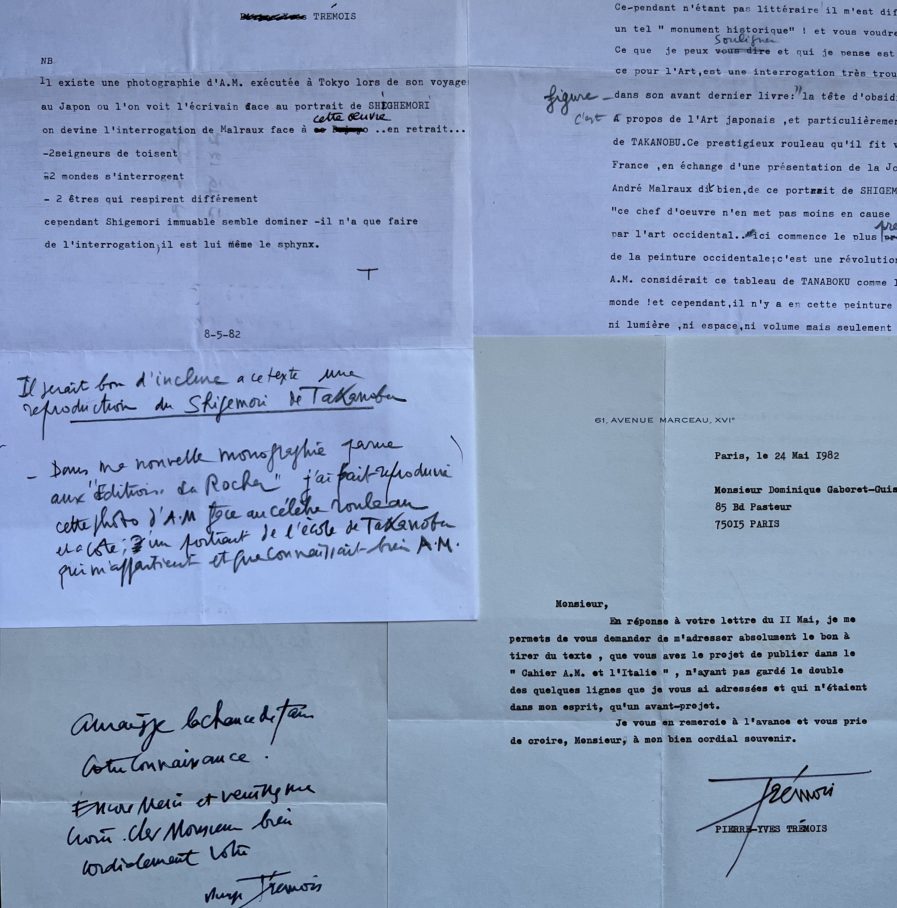 TRÉMOIS
NB
Il existe une photographie d'A.M. exécutée à Tokyo lors de son voyage
au Japon ou l'on voit l'écrivain face au portrait de SHIGHEMORI
cette œuvre
on devine l'interrogation de Malraux face à ..en retrait...
-2seigneurs de toisent
-2 mondes s'interrogent
- 2 êtres qui respirent différement
cependant Shigemori immuable semble dominer -il n'a que faire
de l'interrogation,il est lui même le sphynx.
T
8-5-82
Il serait bon d'inclure a ce texte une
reproduction du Shigemori de Takanobu
- Dans ma nouvelle monographie parue
aux "Editions du Rocher" j'ai fait reproduire
cette photo d'A.M face au célèbre rouleau
et a coté, un portrait de l'école de Takanobu
qui m'appartient et que connaissait bien A.M.
Ce-pendant n'étant pas littéraire il m'est dif
un tel " monument historique" ! et vous voudre
souligner
Ce que je peux vous dire et qui je pense est
ce pour l'Art,est une interrogation très trou
figure - dans son avant dernier livre:"la tête d'obsid
c'est à propos de l'Art japonais ,et particulièremen
de TAKANOBU.Ce prestigieux rouleau qu'il fit v
France ,en échange d'une présentation de la Jo
André Malraux dit bien,de ce portrait de SHIGEM
"ce chef d'oeuvre n'en met pas moins en cause
par l'art occidental...ici commence le plus
de la peinture occidentale;c'est une révolution
A.M. considérait ce tableau de TANABOKU comme l
monde !et cependant,il n'y a en cette peinture
ni lumière ,ni espace,ni volume mais seulement
61, AVENUE MARCEAU, XVIe
Paris, le 24 Mai 1982
Monsieur Dominique Gaboret-Guis
85 Bd Pasteur
75015 PARIS
Monsieur,
En réponse à votre lettre du II Mai, je me
permets de vous demander de m'adresser absolument le bon à
tirer du texte , que vous avez le projet de publier dans le
" Cahier A.M. et l'Italie " , n'ayant pas gardé le double
des quelques lignes que je vous ai adressées et qui n'étaient
dans mon esprit, qu'un avant-projet.
Je vous en remercie à l'avance et vous prie
de croire, Monsieur, à mon bien cordial souvenir.
Trémois
PIERRE-YVES TRÉMOIS
la chance de faire
votre connaissance.
Encore Merci et veuillez me
croire Cher Monsieur bien
cordialement votre
Trémois